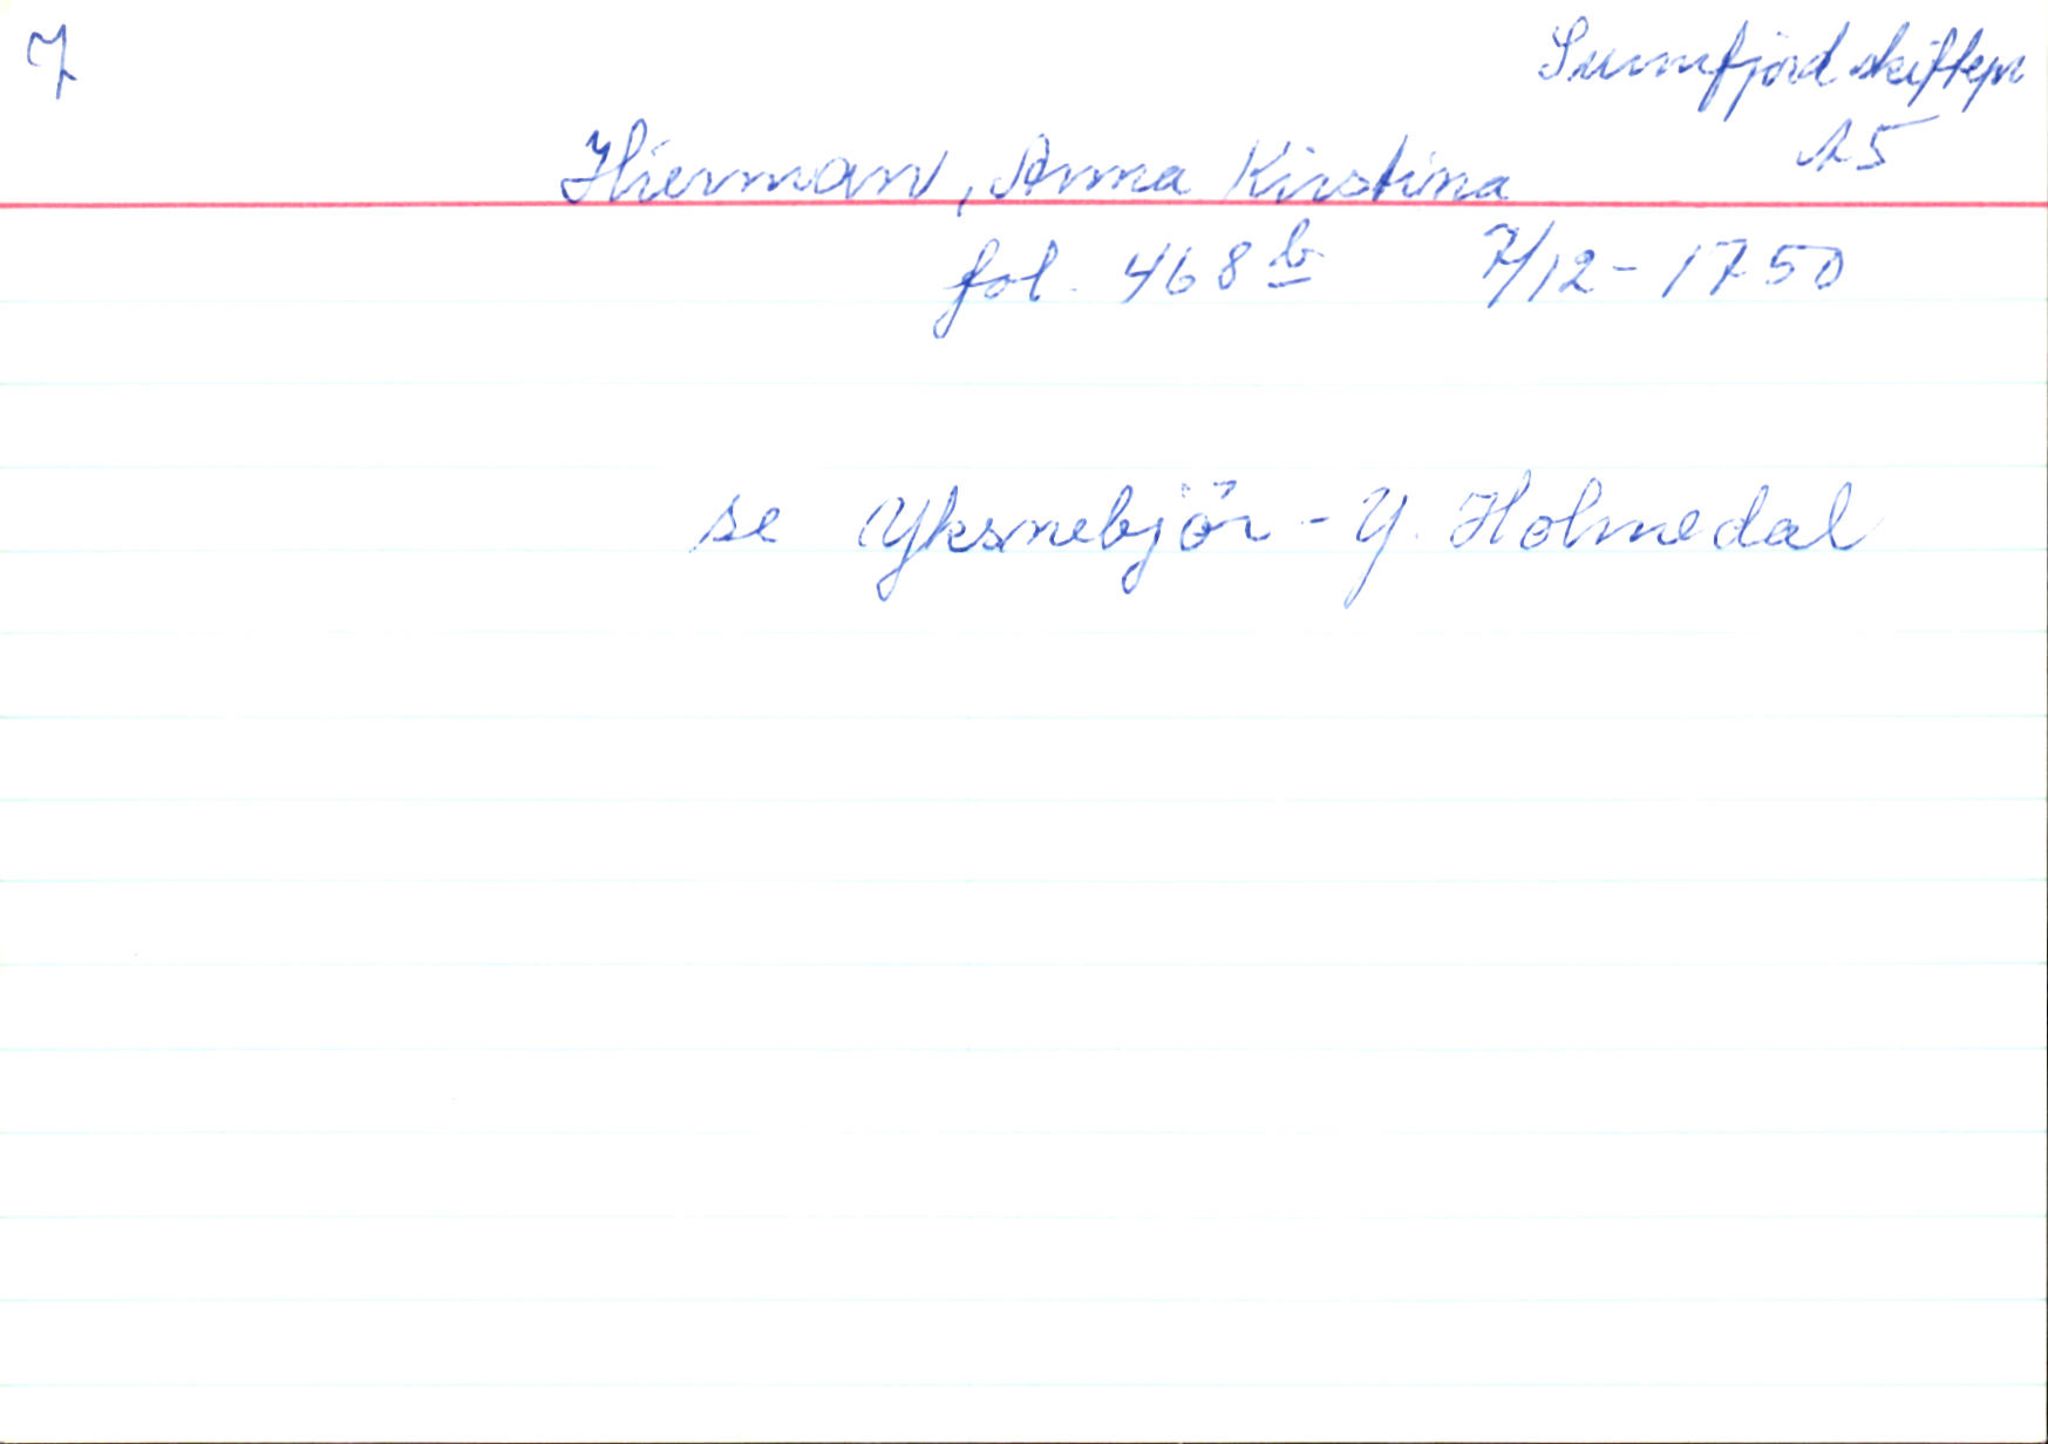 7
Sunnfjord skiftepr
15
Hierman, Anna Kirstina
fol. 468 b 7/12-1750
se Yksnebjör - Y. Holmedal